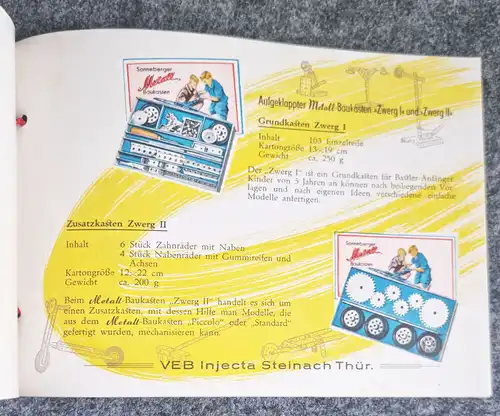 Sonneberger
Metall
Baukasten
Aufgeklappter Metall-Baukasten »Zwerg I« und »Zwerg II«
Grundkasten Zwerg I
Inhalt 103 Einzelteile
Kartongröße 15×19 cm
Gewicht ca. 250 g
Der „Zwerg I" ist ein Grundkasten für Bastler-Anfänger.
Kinder von 5 Jahren an können nach beiliegenden Vor-
lagen und nach eigenen Ideen verschiedene einfache
Modelle anfertigen.
Zusatzkasten Zwerg II
Inhalt 6 Stück Zahnräder mit Naben
4 Stück Nabenräder mit Gummireifen und
Achsen
Kartongröße 12×22 cm
Gewicht ca. 200 g
Beim Metall-Baukasten „Zwerg II" handelt es sich um
einen Zusatzkasten, mit dessen Hilfe man Modelle, die
aus dem Metall-Baukasten „Piccolo" oder „Standard"
gefertigt wurden, mechanisieren kann.
Sonneberger
Metall
Baukasten
VEB Injecta Steinach Thür.